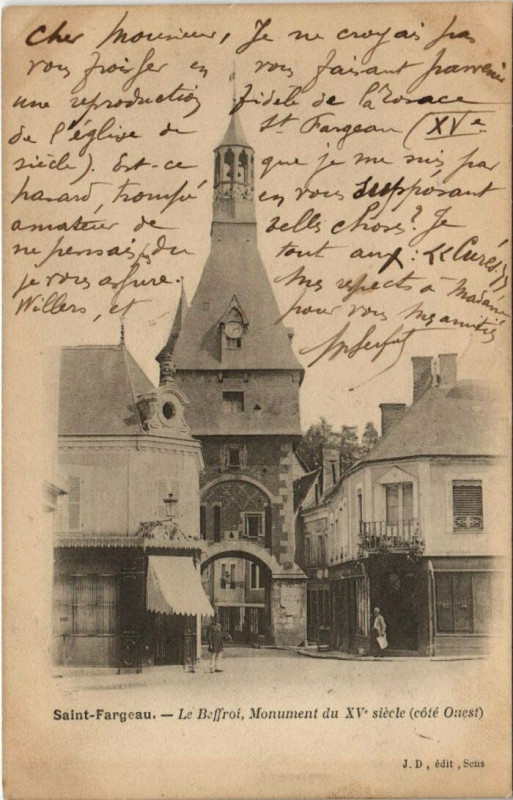 Cher Monsieur, Je ne croyais pas
vous froisser en vous faisant parvenir
une reproduction fidèle de la rosace
de l'église de St Fargeau (XVe
siècle). Est-ce que je me suis, par
hasard, trompé en vous supposant
amateur de belles choses? Je
ne pensais, du tout aux: «Curés»,
je vous assure. Mes respects à Madame
Willers, et pour vous mes amitiés
Saint-Fargeau. — Le Beffroi, Monument du XVe siècle (côté Ouest)
J. D, édit, Sens